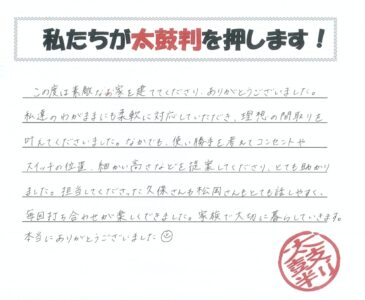 私たちが太鼓判を押します！
この度は素敵なお家を建ててくださり、ありがとうございました。
私達のわがままにも柔軟に対応していただき、理想の間取りを
叶えてくださいました。なかでも、使い勝手を考えてコンセントや
スイッチの位置、細かい高さなどを提案してくださり、とても助かり
ました。担当してくださった久保さんも松岡さんもとても話しやすく、
毎回打ち合わせが楽しくできました。家族で大切に暮らしていきます。
本当にありがとうございました
太鼓判